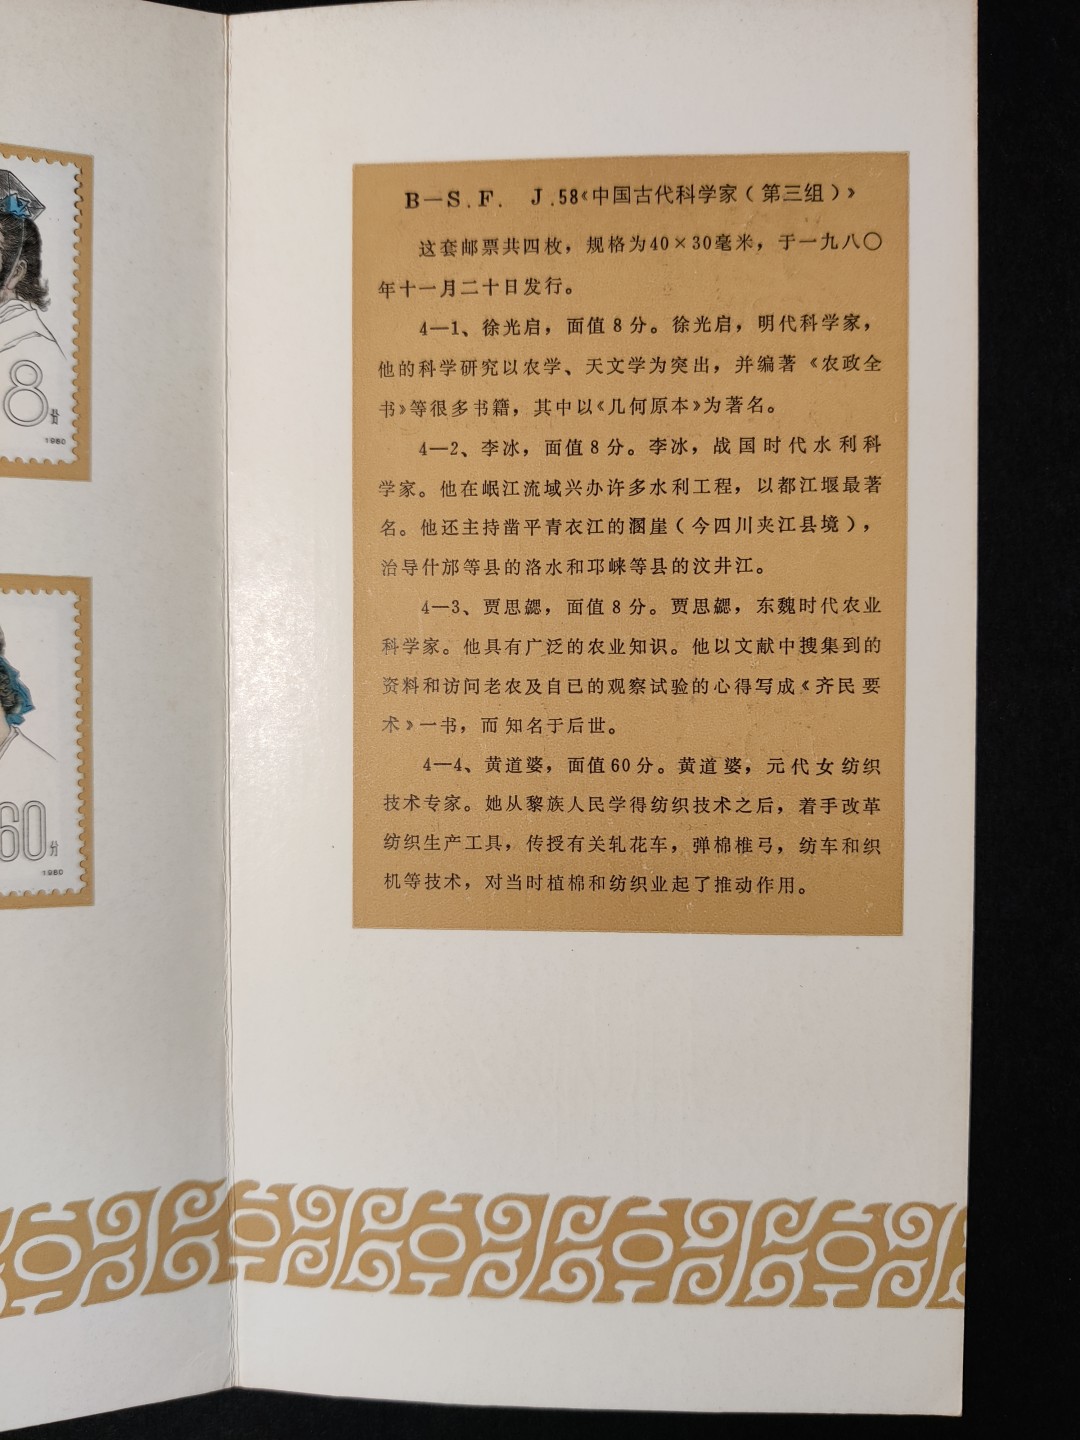 8分
1980
60分
1980
B—S.F. J.58《中国古代科学家(第三组)》
这套邮票共四枚，规格为40×30毫米，于一九八〇
年十一月二十日发行。
4—1、徐光启，面值8分。徐光启，明代科学家，
他的科学研究以农学、天文学为突出，并编著《农政全
书》等很多书籍，其中以《几何原本》为著名。
4—2、李冰，面值8分。李冰，战国时代水利科
学家。他在岷江流域兴办许多水利工程，以都江堰最著
名。他还主持凿平青衣江的溷崖(今四川夹江县境)，
治导什邡等县的洛水和邛崃等县的汶井江。
4—3、贾思勰，面值8分。贾思勰，东魏时代农业
科学家。他具有广泛的农业知识。他以文献中搜集到的
资料和访问老农及自已的观察试验的心得写成《齐民要
术》一书，而知名于后世。
4—4、黄道婆，面值60分。黄道婆，元代女纺织
技术专家。她从黎族人民学得纺织技术之后，着手改革
纺织生产工具，传授有关轧花车，弹棉椎弓，纺车和织
机等技术，对当时植棉和纺织业起了推动作用。